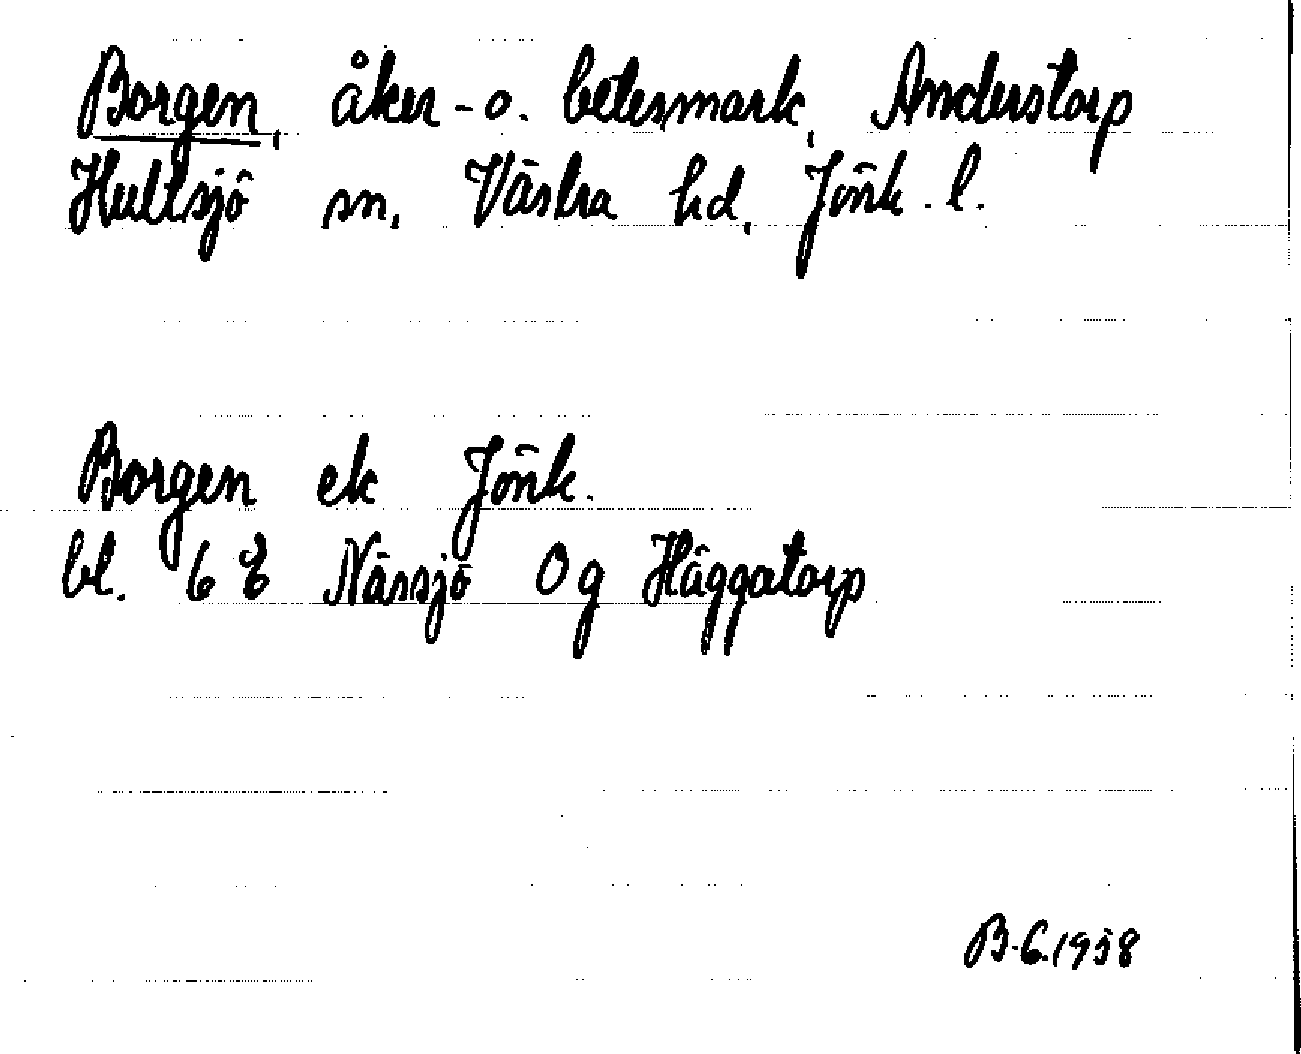 Borgen, åker- o. betesmark, Anderstorp
Hultsjö sn, Västra hd, Jönk. l.
Borgen ek Jönk.
bl. 6 E Nässjö 0 g Häggatorp
B.G. 1958